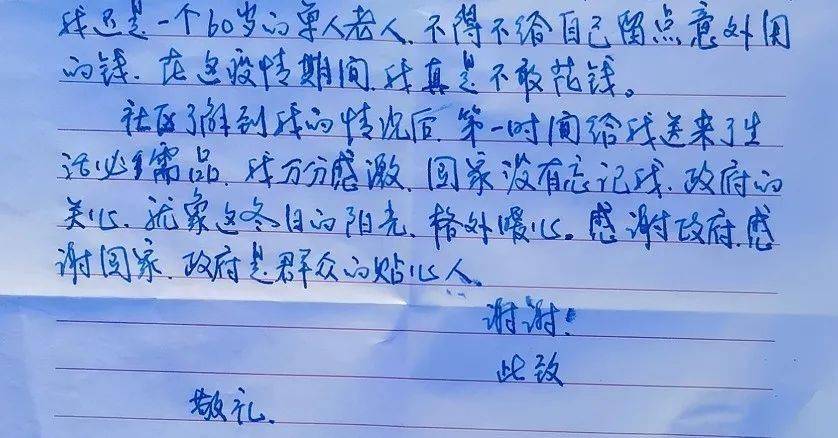 我还是一个60岁的单人老人、不得不给自己留点意外用
的钱、在这疫情期间、我真是不敢花钱。
社区了解到我的情况后、第一时间给我送来了生
活必需品、我万分感激、国家没有忘记我、政府的
关心、就象这冬日的阳光、格外暖心。感谢政府、感
谢国家、政府是群众的贴心人、
谢谢！
此致
敬礼、